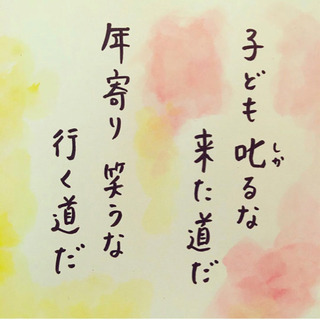 子ども叱るな
来た道だ
年寄り笑うな
行く道だ